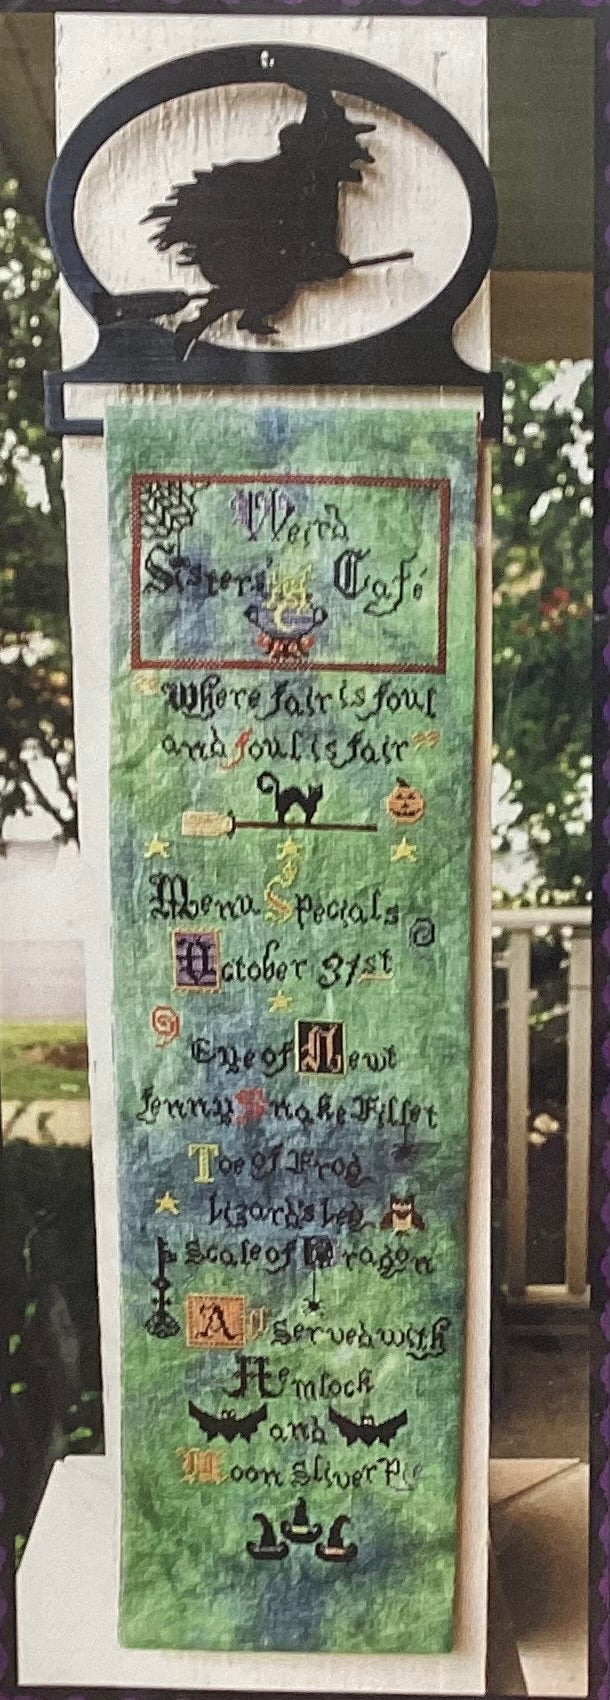 Weird
Sisters' Café
"Where fair is foul
and foul is fair"
Menu Specials
October 31st
Eye of Newt
Fenny Snake Fillet
Toe of Frog
Lizard's Leg
Scale of Dragon
All served with
Hemlock
and
Moon Sliver Pie